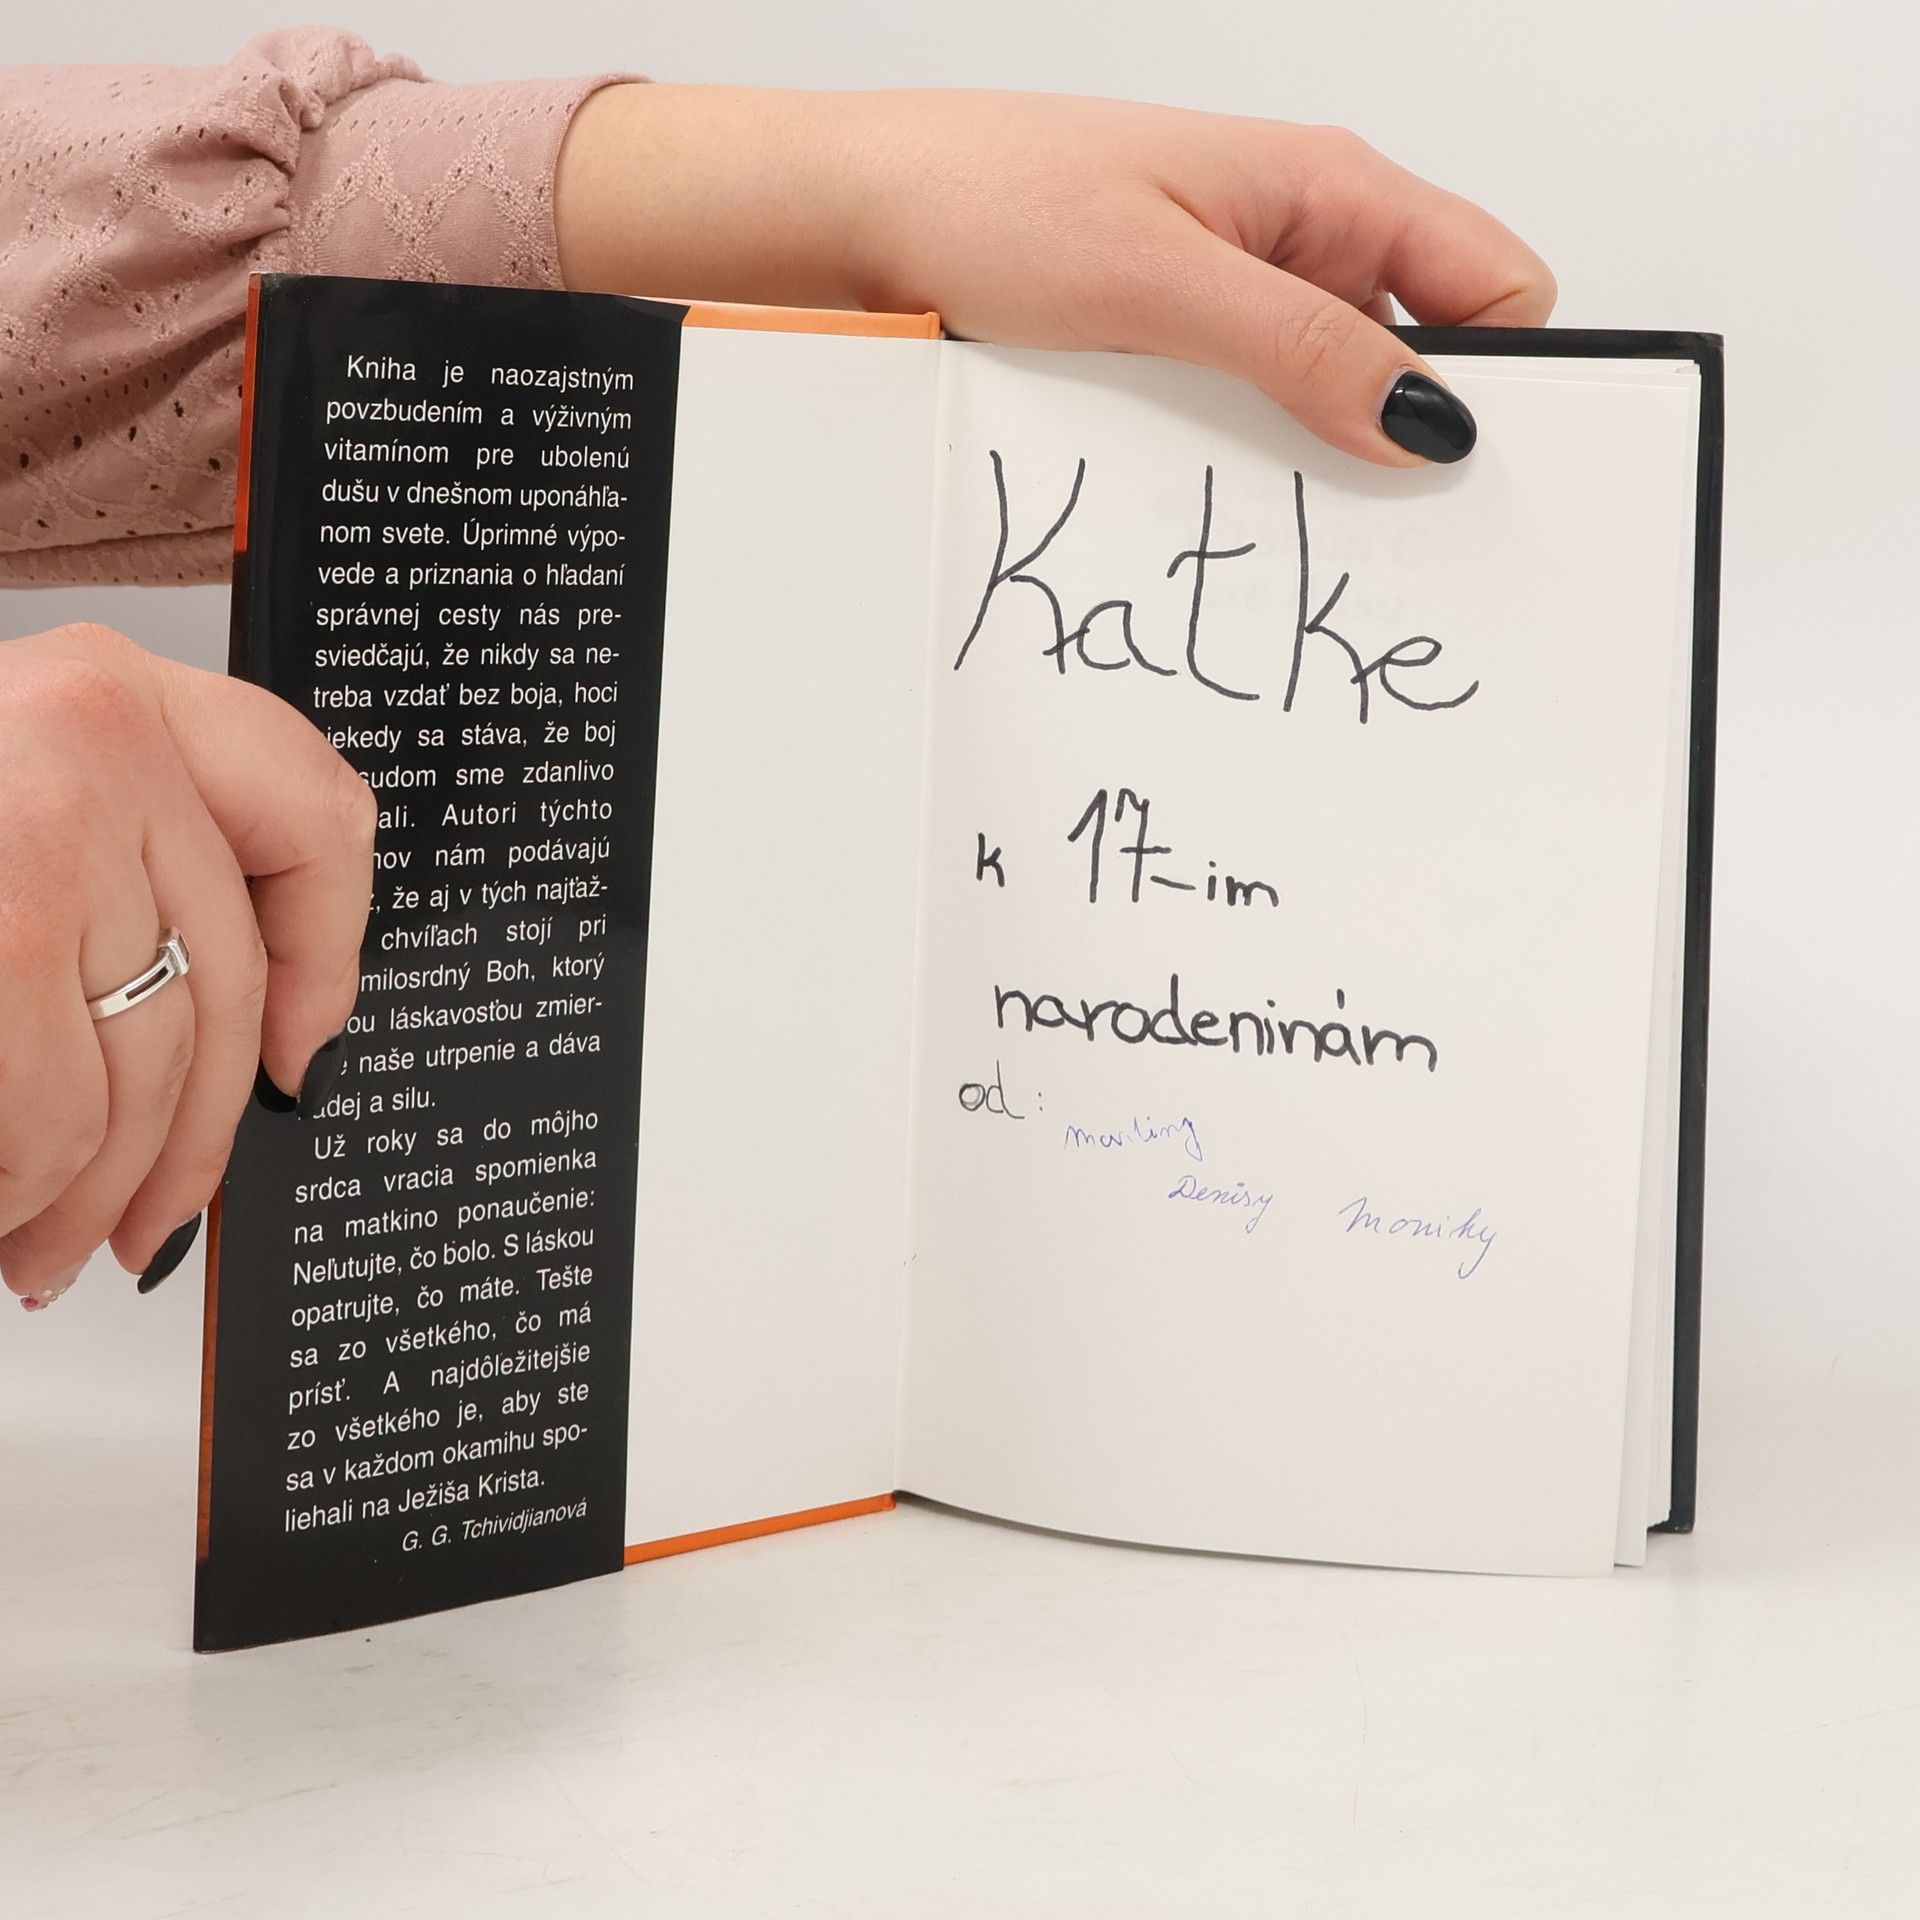 Kniha je naozajstným
povzbudením a výživným
vitamínom pre ubolenú
dušu v dnešnom uponáhľa-
nom svete. Úprimné výpo-
vede a priznania o hľadaní
správnej cesty nás pre-
sviedčajú, že nikdy sa ne-
treba vzdať bez boja, hoci
sa stáva, že boj
sme zdanlivo
Autori týchto
nám podávajú
že aj v tých najťaž-
chvíľach stojí pri
milosrdný Boh, ktorý
láskavosťou zmier-
naše utrpenie a dáva
a silu.
Už roky sa do môjho
srdca vracia spomienka
na matkino ponaučenie:
Neľutujte, čo bolo. S láskou
opatrujte, čo máte. Tešte
sa zo všetkého, čo má
prísť. A najdôležitejšie
zo všetkého je, aby ste
sa v každom okamihu spo-
liehali na Ježiša Krista.
G. G. Tchividjianová
Katke
k 17-im
narodeninám
od:
Denisy Moniky